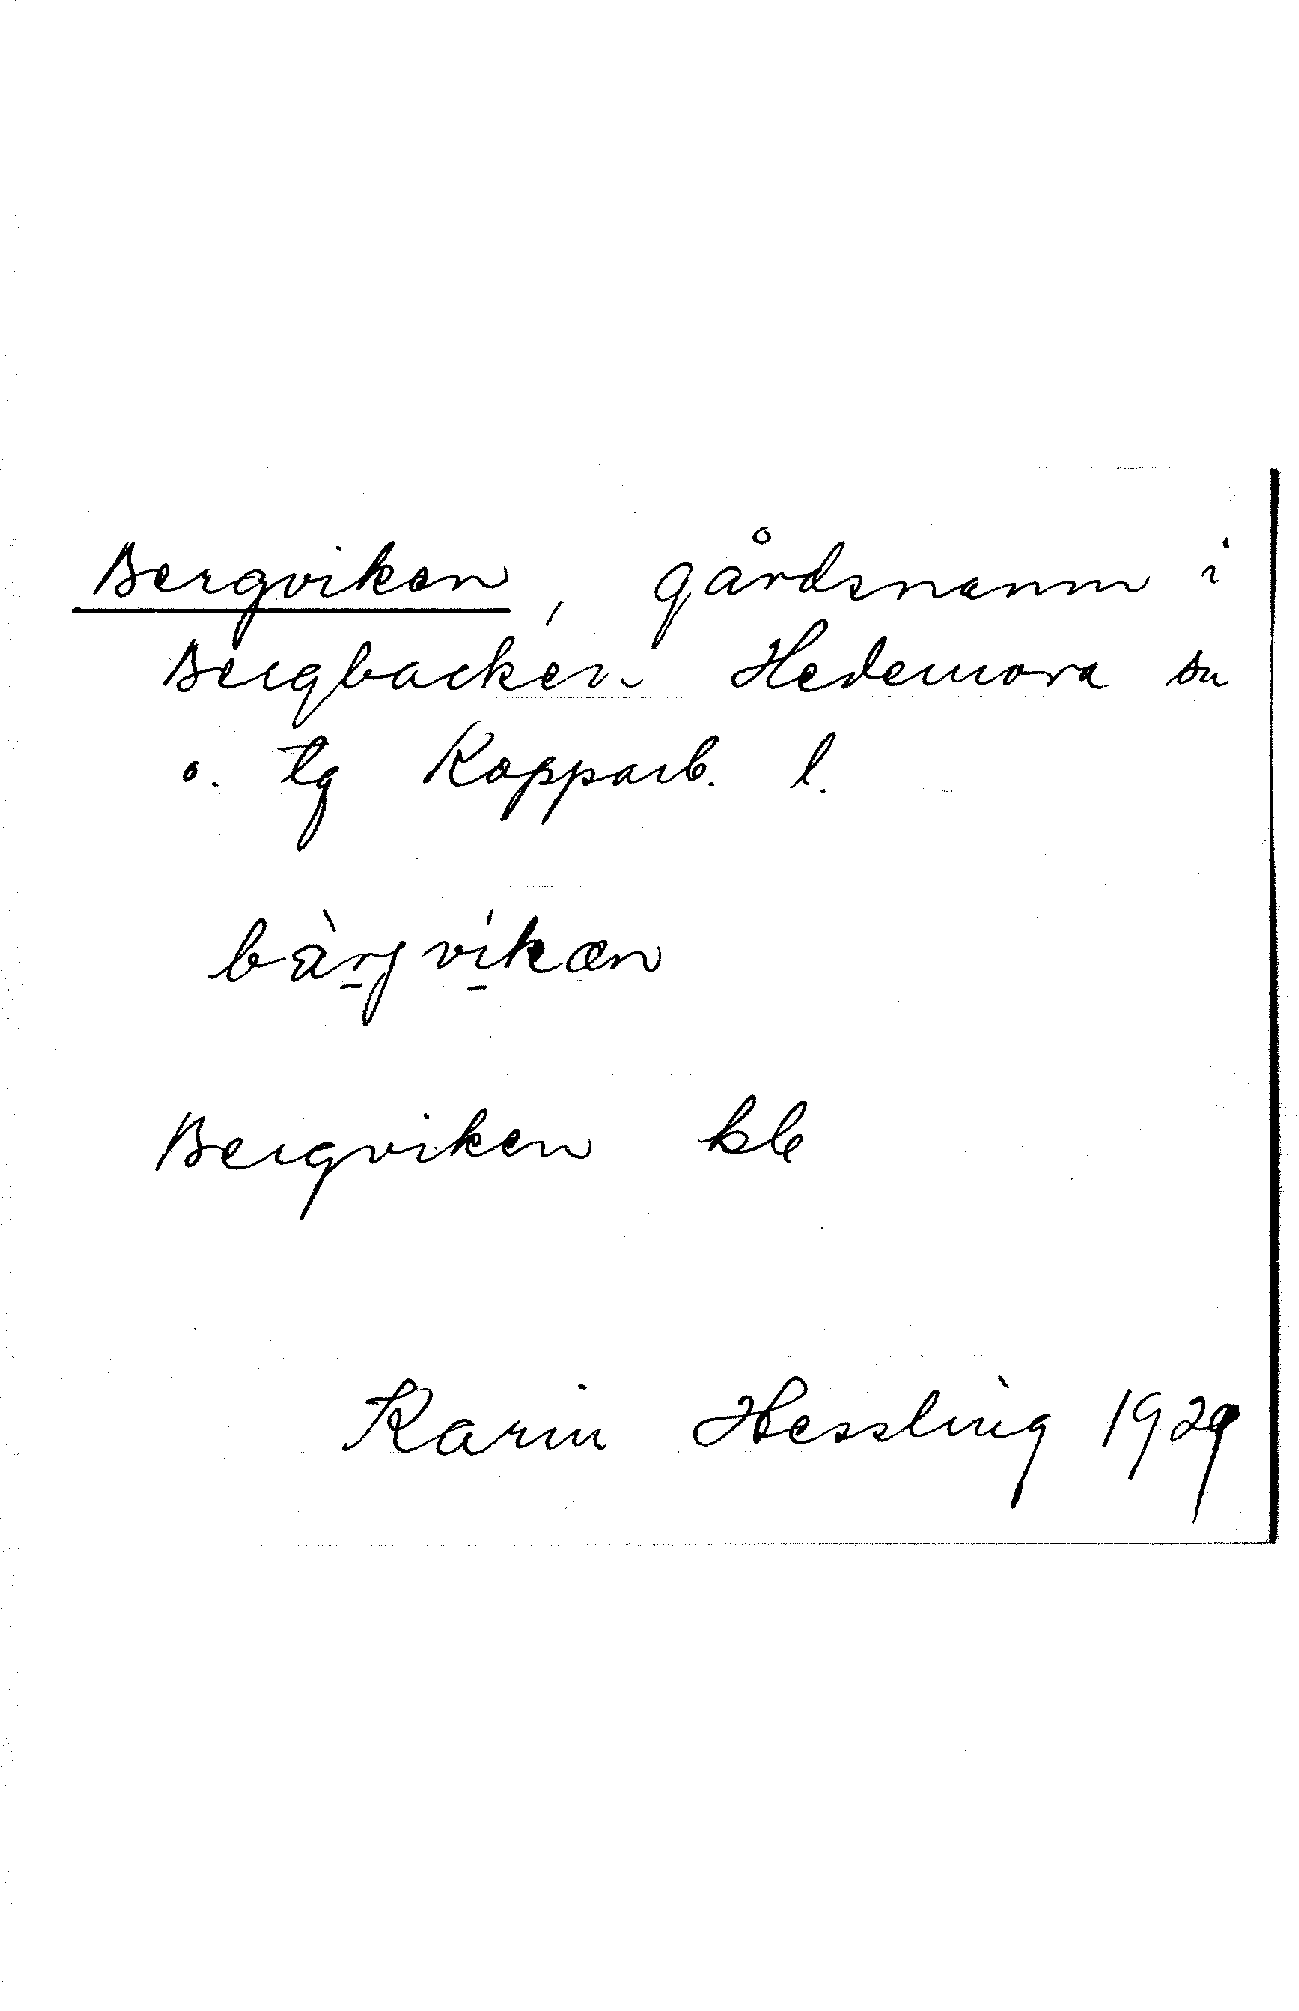 Bergviken, gårdsnamn i
Bergbacken Hedemora sn
o. tg Kopparb. l.
bàrj víkæn
Bergviken kb
Karin Hessling 1929